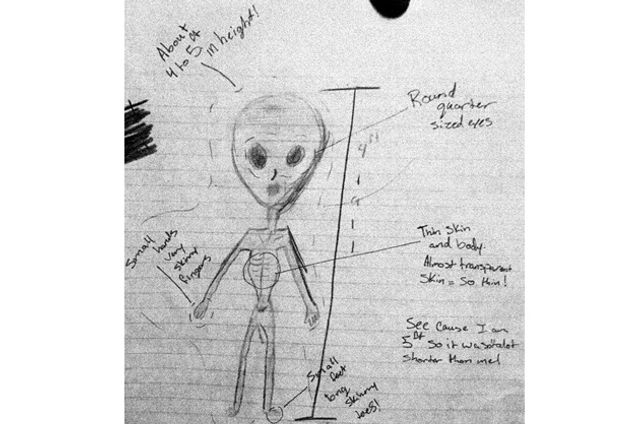 About
4 to 5 ft
in height!
Round
quarter
sized eyes
4ft
Small
hands
very
skinny
fingers
Thin skin
and body.
Almost transparent
skin = so thin!
See cause I am
5ft so it was
shorter than me!
Small
feet
long
skinny
toes!